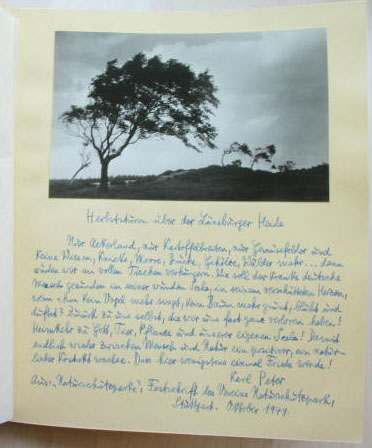 Herbststurm über der Lüneburger Heide
Nur Ackerland, nur Kartoffelbreiten, nur Gemüsefelder und
keine Wiesen, Knicks, Moore, Büsche, Gehölze, Wälder mehr... dann
würden wir an vollen Tischen verhungern. Wie soll der kranke deutsche
Mensch gesunden an seiner wunden Seele, an seinem zerrütteten Herzen,
wenn ihm kein Vogel mehr singt, kein Baum mehr grünt, blüht und
duftet? Zurück zu uns selbst, die wir uns fast ganz verloren haben!
Heimkehr zu Gott, Tier, Pflanze und unserer eigenen Seele! Damit
endlich wieder zwischen Mensch und Natur ein positiver, ein natür-
licher Kontakt wachse. Dass hier wenigstens einmal Friede würde!
Karl Peter
Aus: "Naturschutzparke", Festschrift des Vereins Naturschutzpark,
Stuttgart. Oktober 1949.